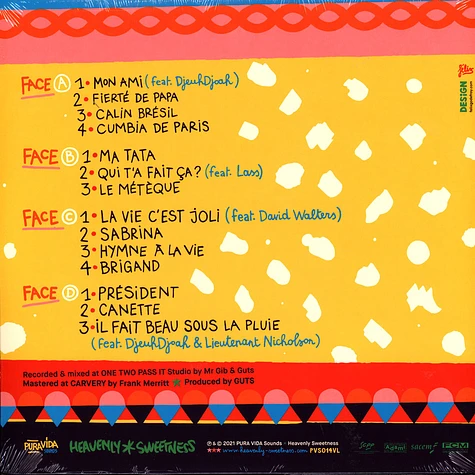 FACE A 1• MON AMI (feat. DjeuhDjoah)
2• FIERTÉ DE PAPA
3• CALIN BRÉSIL
4• CUMBIA DE PARIS
FACE B 1• MA TATA
2• QUI T'A FAIT ÇA? (feat. Lass)
3• LE MÉTÈQUE
FACE C 1• LA VIE C'EST JOLI (feat. David Walters)
2• SABRINA
3• HYMNE À LA VIE
4• BRIGAND
FACE D 1• PRÉSIDENT
2• CANETTE
3• IL FAIT BEAU SOUS LA PLUIE
(feat. DjeuhDjoah & Lieutenant Nicholson)
DESIGN
Recorded & mixed at ONE TWO PASS IT Studio by Mr Gib & Guts
Mastered at CARVERY by Frank Merritt ★ Produced by GUTS
PURA VIDA
HEAVENLY ★ SWEETNESS
℗ & © 2021 PURA VIDA Sounds - Heavenly Sweetness
★★★ www.heavenly-sweetness.com PVS014VL
sacem